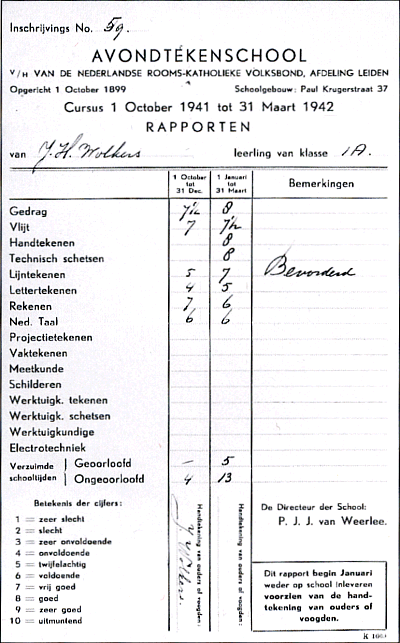 Inschrijvings No. 59.
AVONDTEKENSCHOOL
V/H VAN DE NEDERLANDSE ROOMS-KATHOLIEKE VOLKSBOND, AFDELING LEIDEN
Opgericht 1 October 1899 Schoolgebouw: Paul Krugerstraat 37
Cursus 1 October 1941 tot 31 Maart 1942
RAPPORTEN
van J. H. Wolkers leerling van klasse 1A.
1 October tot 31 Dec. 1 Januari tot 31 Maart Bemerkingen
Gedrag 7½ 8
Vlijt 7 7½
Handtekenen 8
Technisch schetsen 8
Lijntekenen 5 7 Bevorderd
Lettertekenen 4 5
Rekenen 7 6
Ned. Taal 6 6
Projectietekenen
Vaktekenen
Meetkunde
Schilderen
Werktuigk. tekenen
Werktuigk. schetsen
Werktuigkundige
Electrotechniek
Verzuimde schooltijden
Geoorloofd — 5
Ongeoorloofd 4 13
Betekenis der cijfers:
1 = zeer slecht
2 = slecht
3 = zeer onvoldoende
4 = onvoldoende
5 = twijfelachtig
6 = voldoende
7 = vrij goed
8 = goed
9 = zeer goed
10 = uitmuntend
Handtekening van ouders of voogden:
Wolkers.
Handtekening van ouders of voogden:
De Directeur der School:
P. J. J. van Weerlee.
Dit rapport begin Januari
weder op school inleveren
voorzien van de hand-
tekening van ouders of
voogden.